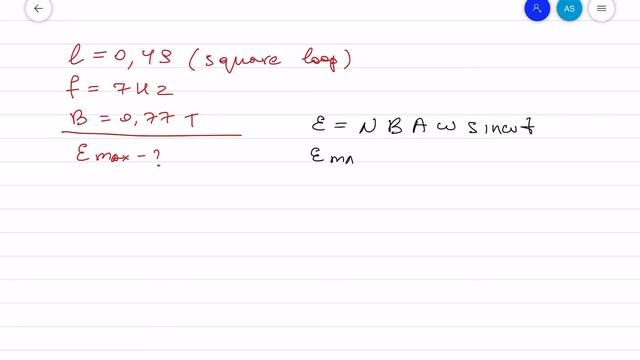 AS
l = 0,43 (square loop)
f = 7Hz
B = 0,77 T
Ɛmax - ?
Ɛ = N B A ω sinωt
Ɛma